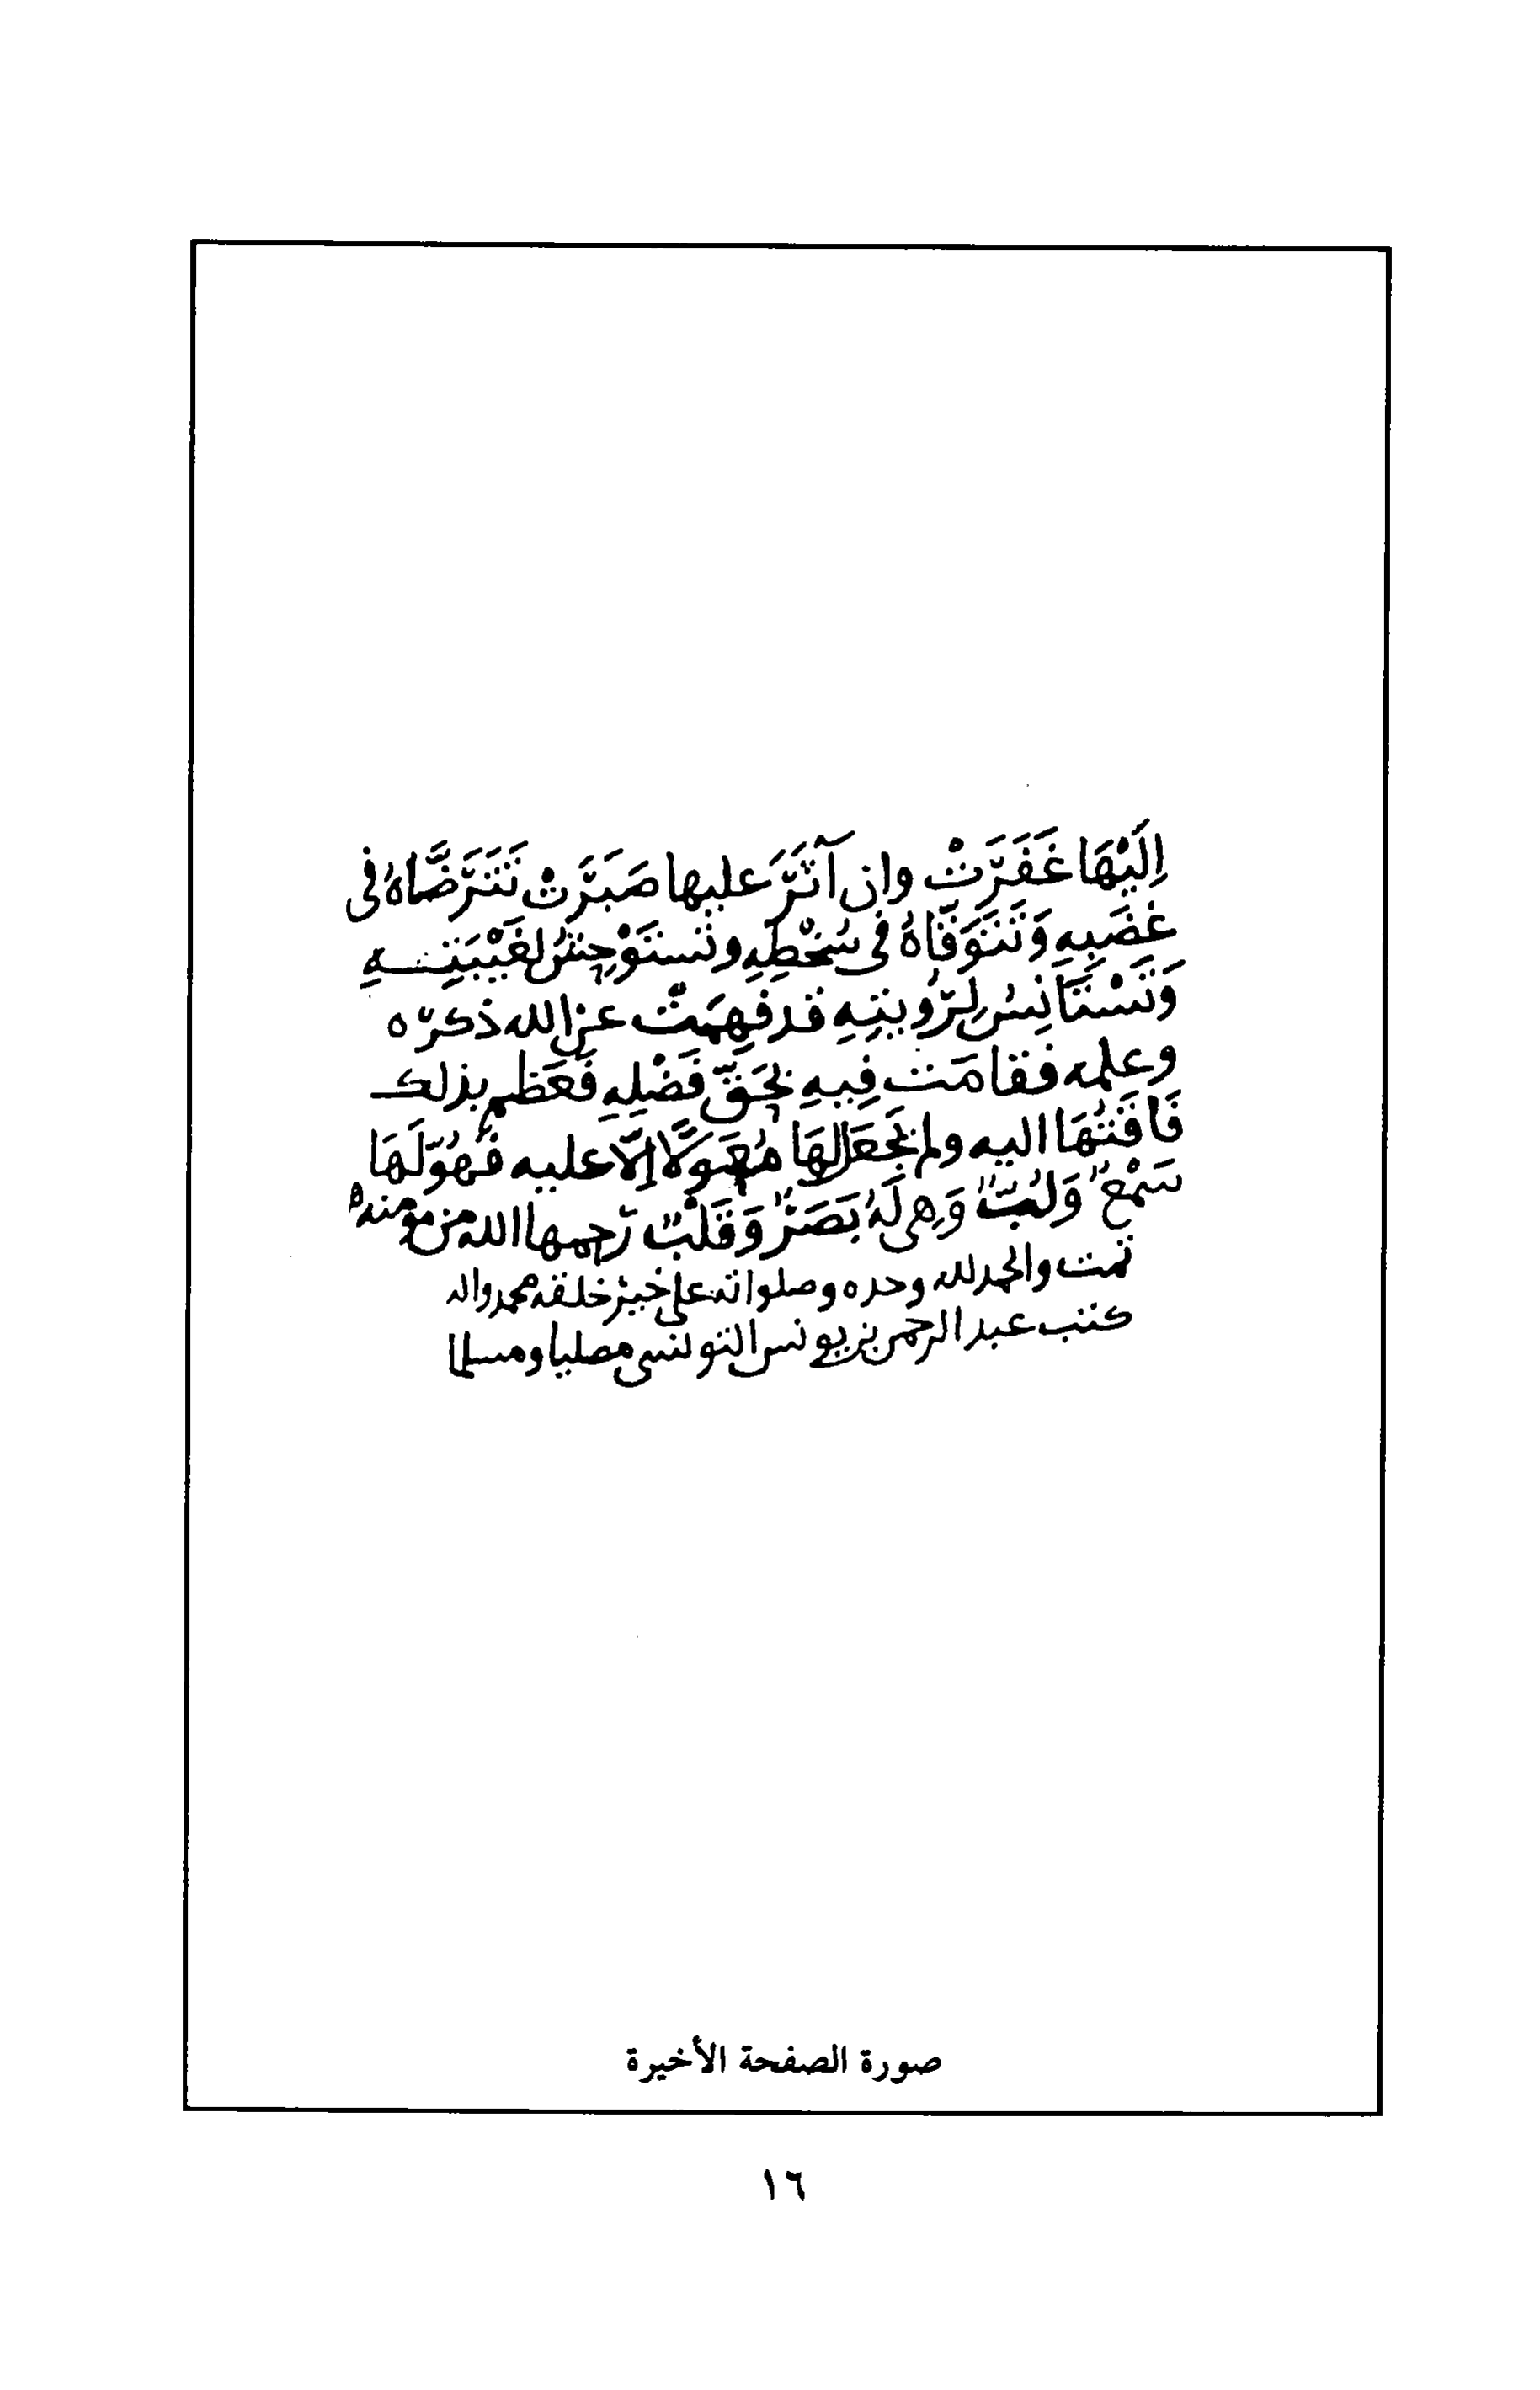 اِلَيْهَا غَفَرَتْ وان آثَرَ عليها صَبَرَتْ تَتَرَضَّاهُ فى
غَضَبِهِ وَتَتَوَقَّاهُ فى سُخْطِهِ وتستَوْحِشُ لغَيْبَتِهِ
وَتَسْتَانِسُ لِرُويتِهِ قد فَهِمَتْ عن الله ذكره
وعلمه فقامَت فِيهِ بحَقّ فَضْلِهِ فَعَظم بذلك
فَاقَتُهَا اليه ولم يَجعَل لهَا مُعَوَّلًا إِلّا عليه فهُوَ لَهَا
سَمْعٌ وَلُبٌ وَهِىَ لَهُ بَصَرٌ وَقَلْبٌ رَحمها الله من مومنه
تمت والحمد لله وحده وصلواته على خير خلقه محمد واله
كتب عبد الرحمن بن يونس التونسى مصليا ومسلما
صورة الصفحة الأخيرة
١٦